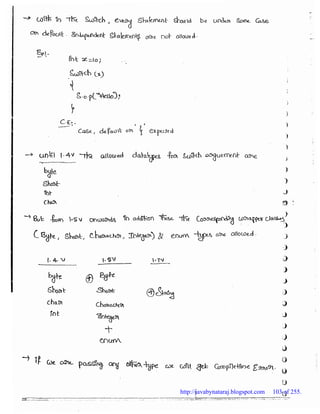 → with in the switch, every statement should be under some case
or default. Independent statements are not allowed.
Ex:-
int x=10;
switch (x)
{
S.o.p("Hello");
}
CE:-
case, default or '}' expected
→ until 1.4v the allowed datatypes for switch argument are
byte
short
int
char
→ But from 1.5v onwards in addition these the corresponding wrapper classes
(Byte, Short, Character, Integer) & enum types are allowed.
1.4v 1.5V 1.7V
byte ⊕ Byte
short Short ⊕ String
char Character
int Integer
+
enum
→ If we are passing any other type we will get CompileTime Error.
http://javabynataraj.blogspot.com 103 of 255.